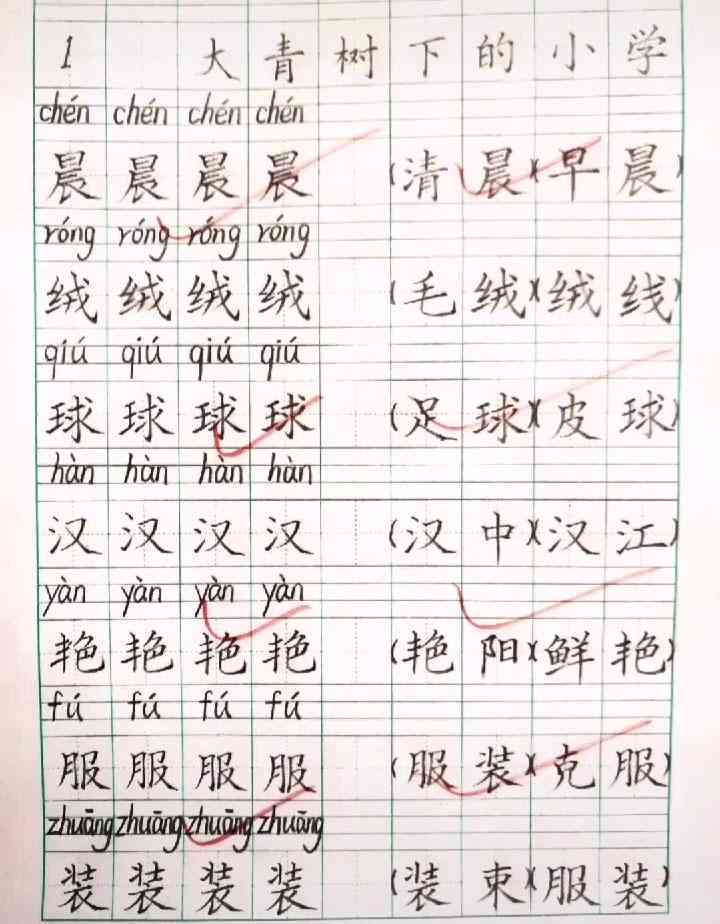 1 大青树下的小学
chén chén chén chén
晨晨晨晨 (清晨)(早晨)
róng róng róng róng
绒绒绒绒 (毛绒)(绒线)
qiú qiú qiú qiú
球球球球 (足球)(皮球)
hàn hàn hàn hàn
汉汉汉汉 (汉中)(汉江)
yàn yàn yàn yàn
艳艳艳艳 (艳阳)(鲜艳)
fú fú fú fú
服服服服 (服装)(克服)
zhuāng zhuāng zhuāng zhuāng
装装装装 (装束)(服装)